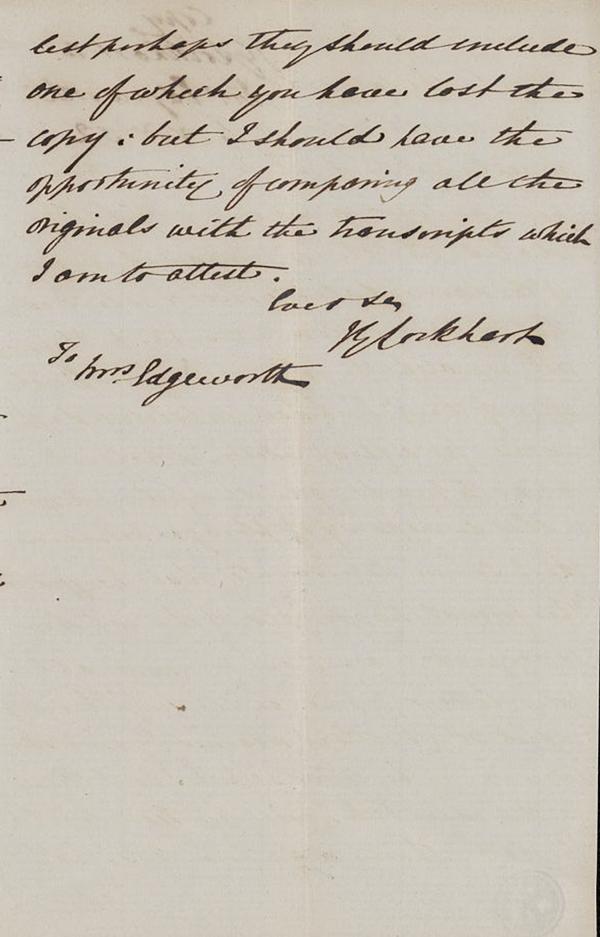 lest perhaps they should include
one of which you have lost the
copy : but I should have the
opportunity of comparing all the
originals with the transcripts which
I am to attest .
Ever &c
JG Lockhart
To
Mrs Edgeworth